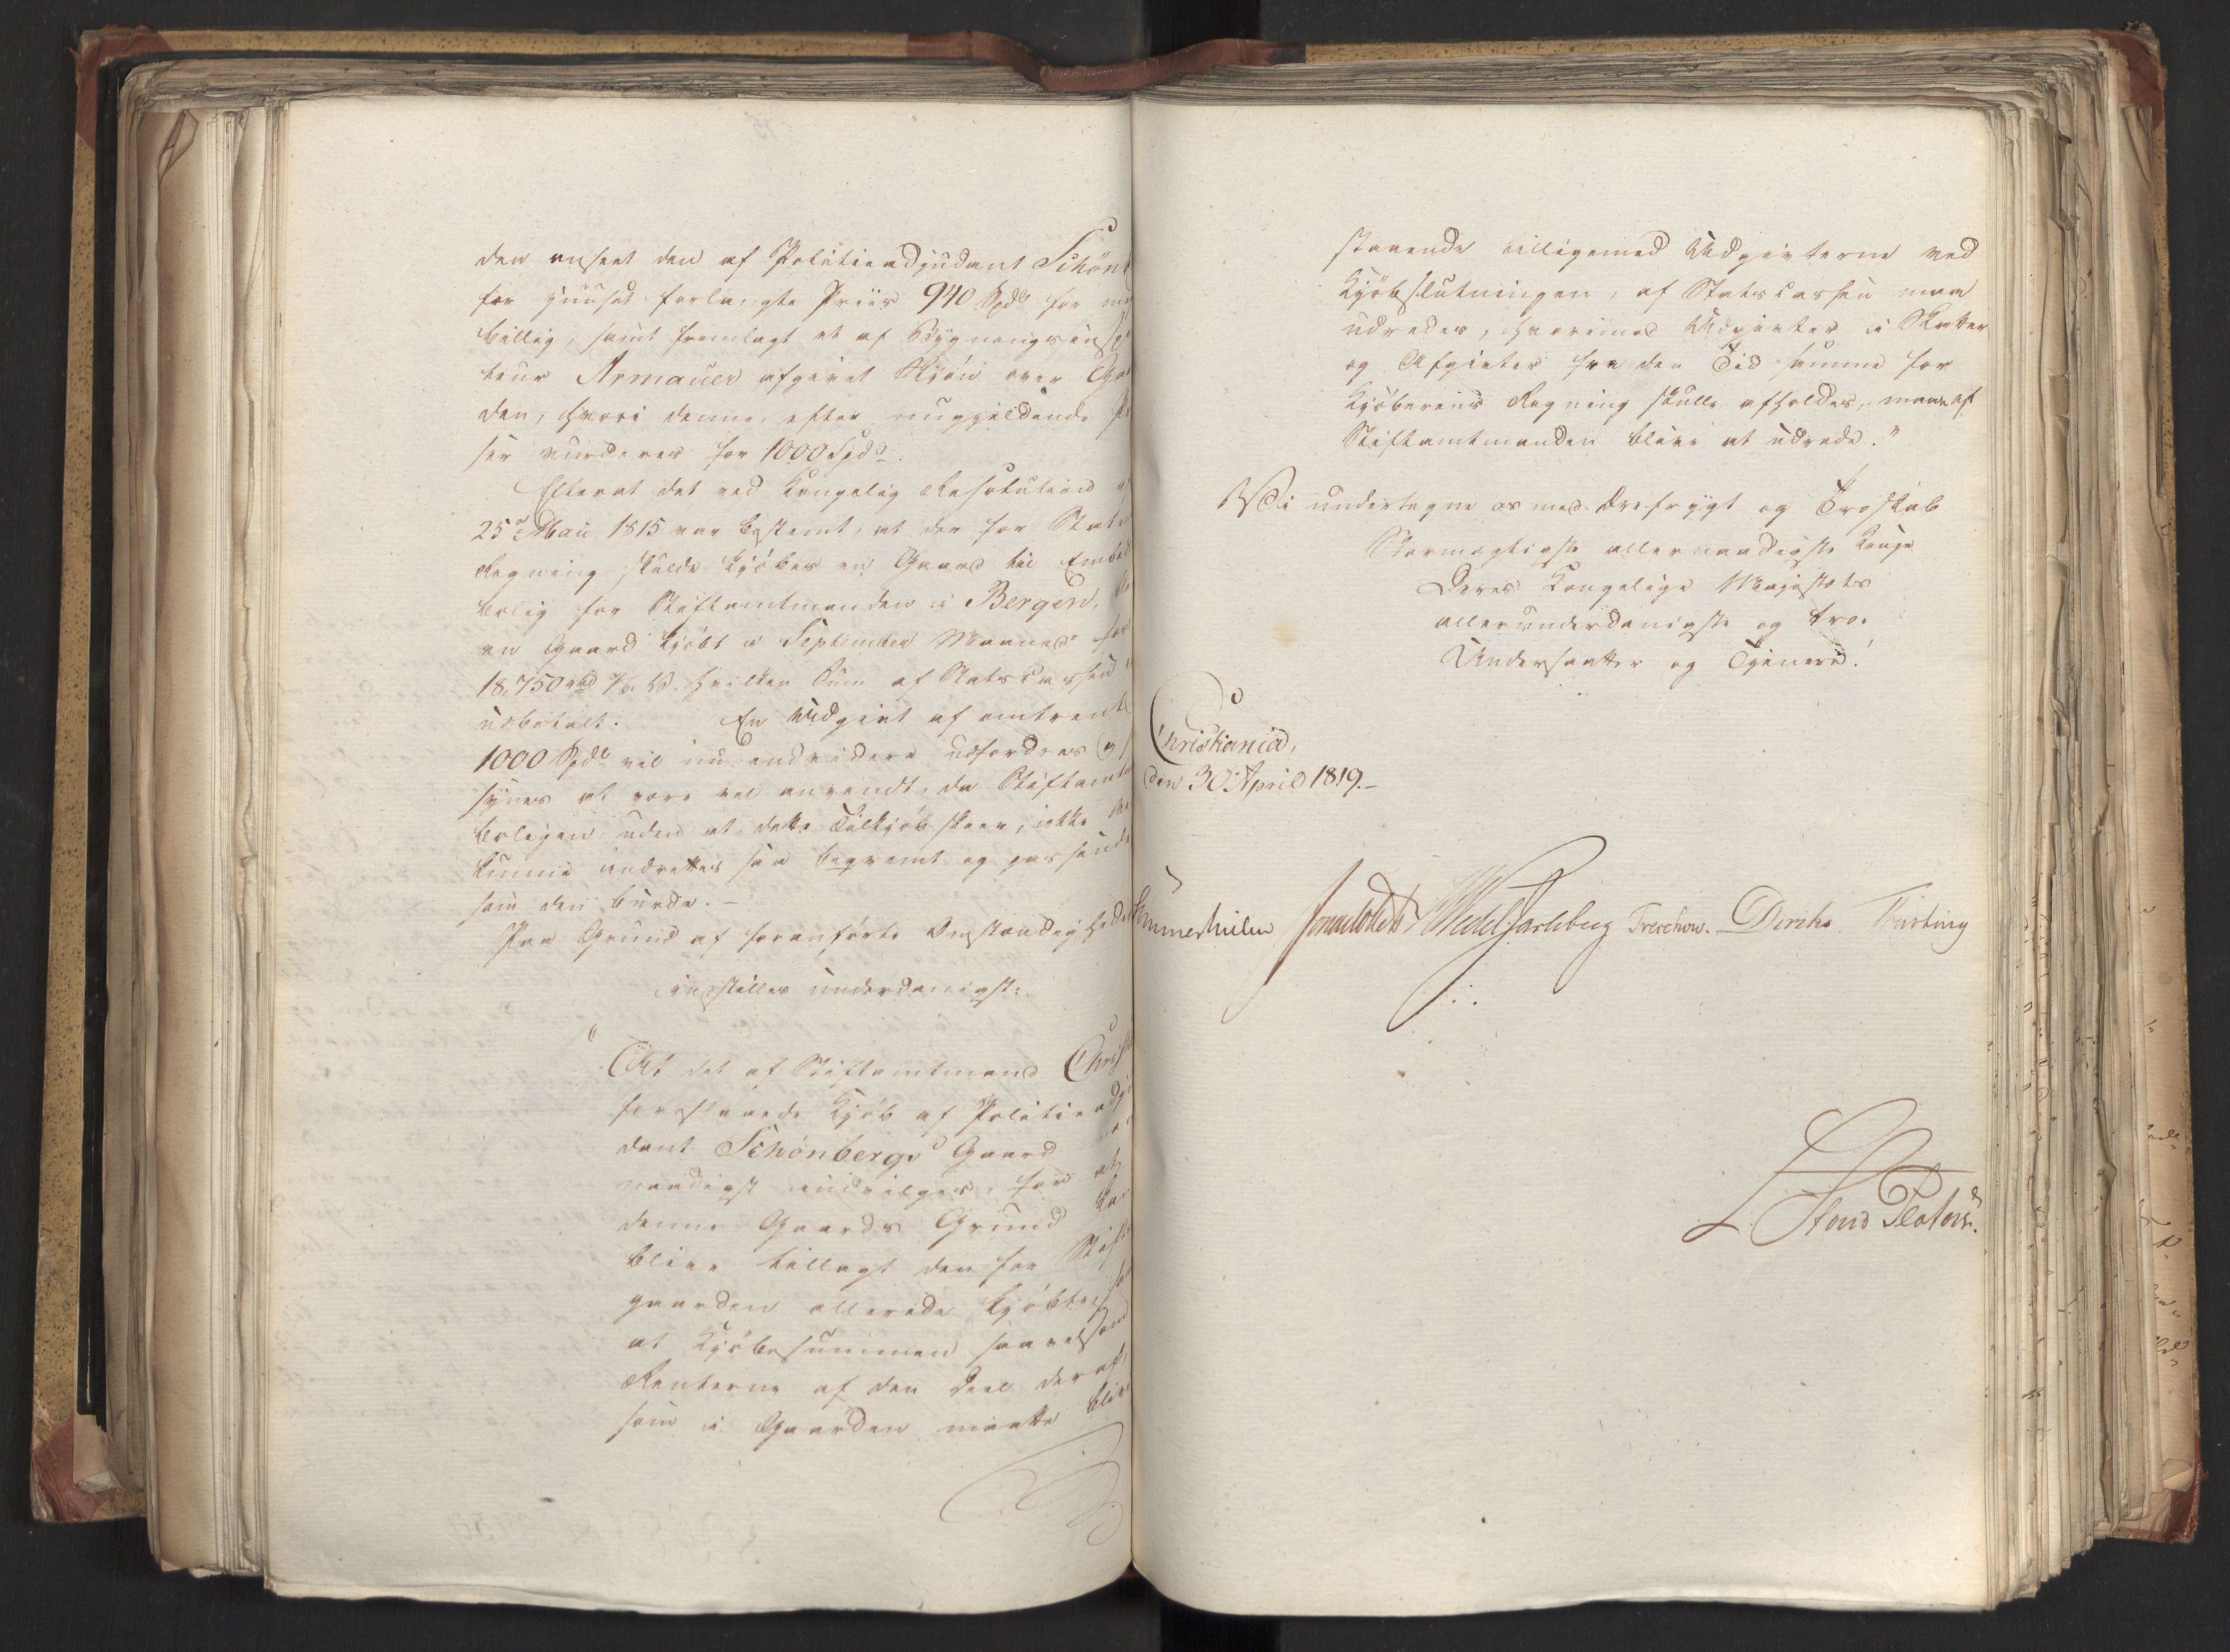 den anseet den af Politieadjudant Schönb
for Huuset forlangte Priis 940 Spd for
billig, samt fremlagt et af Bygningsinspe
teur Armauer afgivet Skjøn over Gaa
den, hvori denne, efter nugjældende
ser vurderes for 1000 Spd.
Efterat det ved Kongelig Resolution af
25de Mai 1815 var bestemt, at der for Stats
Regning skulde kjöbes en Gaard til Embeds
bolig for Stiftamtmanden i Bergen,
en Gaard kjöbt i September Maaned for
18,750 rbd N. V. hvilken Sum af Statscassen
udbetalt. En Udgivt af omtrent
1000 Spd vil nu endvidere udfordres og
synes at være vel anvendt, da Stiftamts
boligen, uden at dette Tilkjöb skeer, ikke
kunne indrettes saa beqvemt og passende
som den burde. –
Paa Grund af foranförte Omstændigheder
indstilles underdanigst:
"At det af Stiftamtmand Christ
foreslaaede Kjöb af Politieadju
dant Schönbergs Gaard
naadigst indvilges, for at
denne Gaards Grund kan
blive tillagt den for Stifts
gaarden allerede kjöbte,
at Kjöbesummen saavelsom
Renterne af den Deel deraf,
som i Gaarden maatte blive
staaende tilligemed Udgivterne ved
Kjöbslutningen, af Statscassen maa
udredes, hvorimod Udgivter i Skatter
og Afgivter fra den Tid samme for
Kjöberens Regning skulle afholdes, maae af
Stiftamtmanden blive at udrede."
Vi undertegne os med Ærefrygt og Troskab
Stormægtigste allernaadigste Konge
Deres Kongelige Majestæts
allerunderdanigste og troe
Undersaatter og Tjenere!
Christiania,
den 30 April 1819.–
Sommerhielm Wedel Jarlsberg Treschow. Diriks Fasting